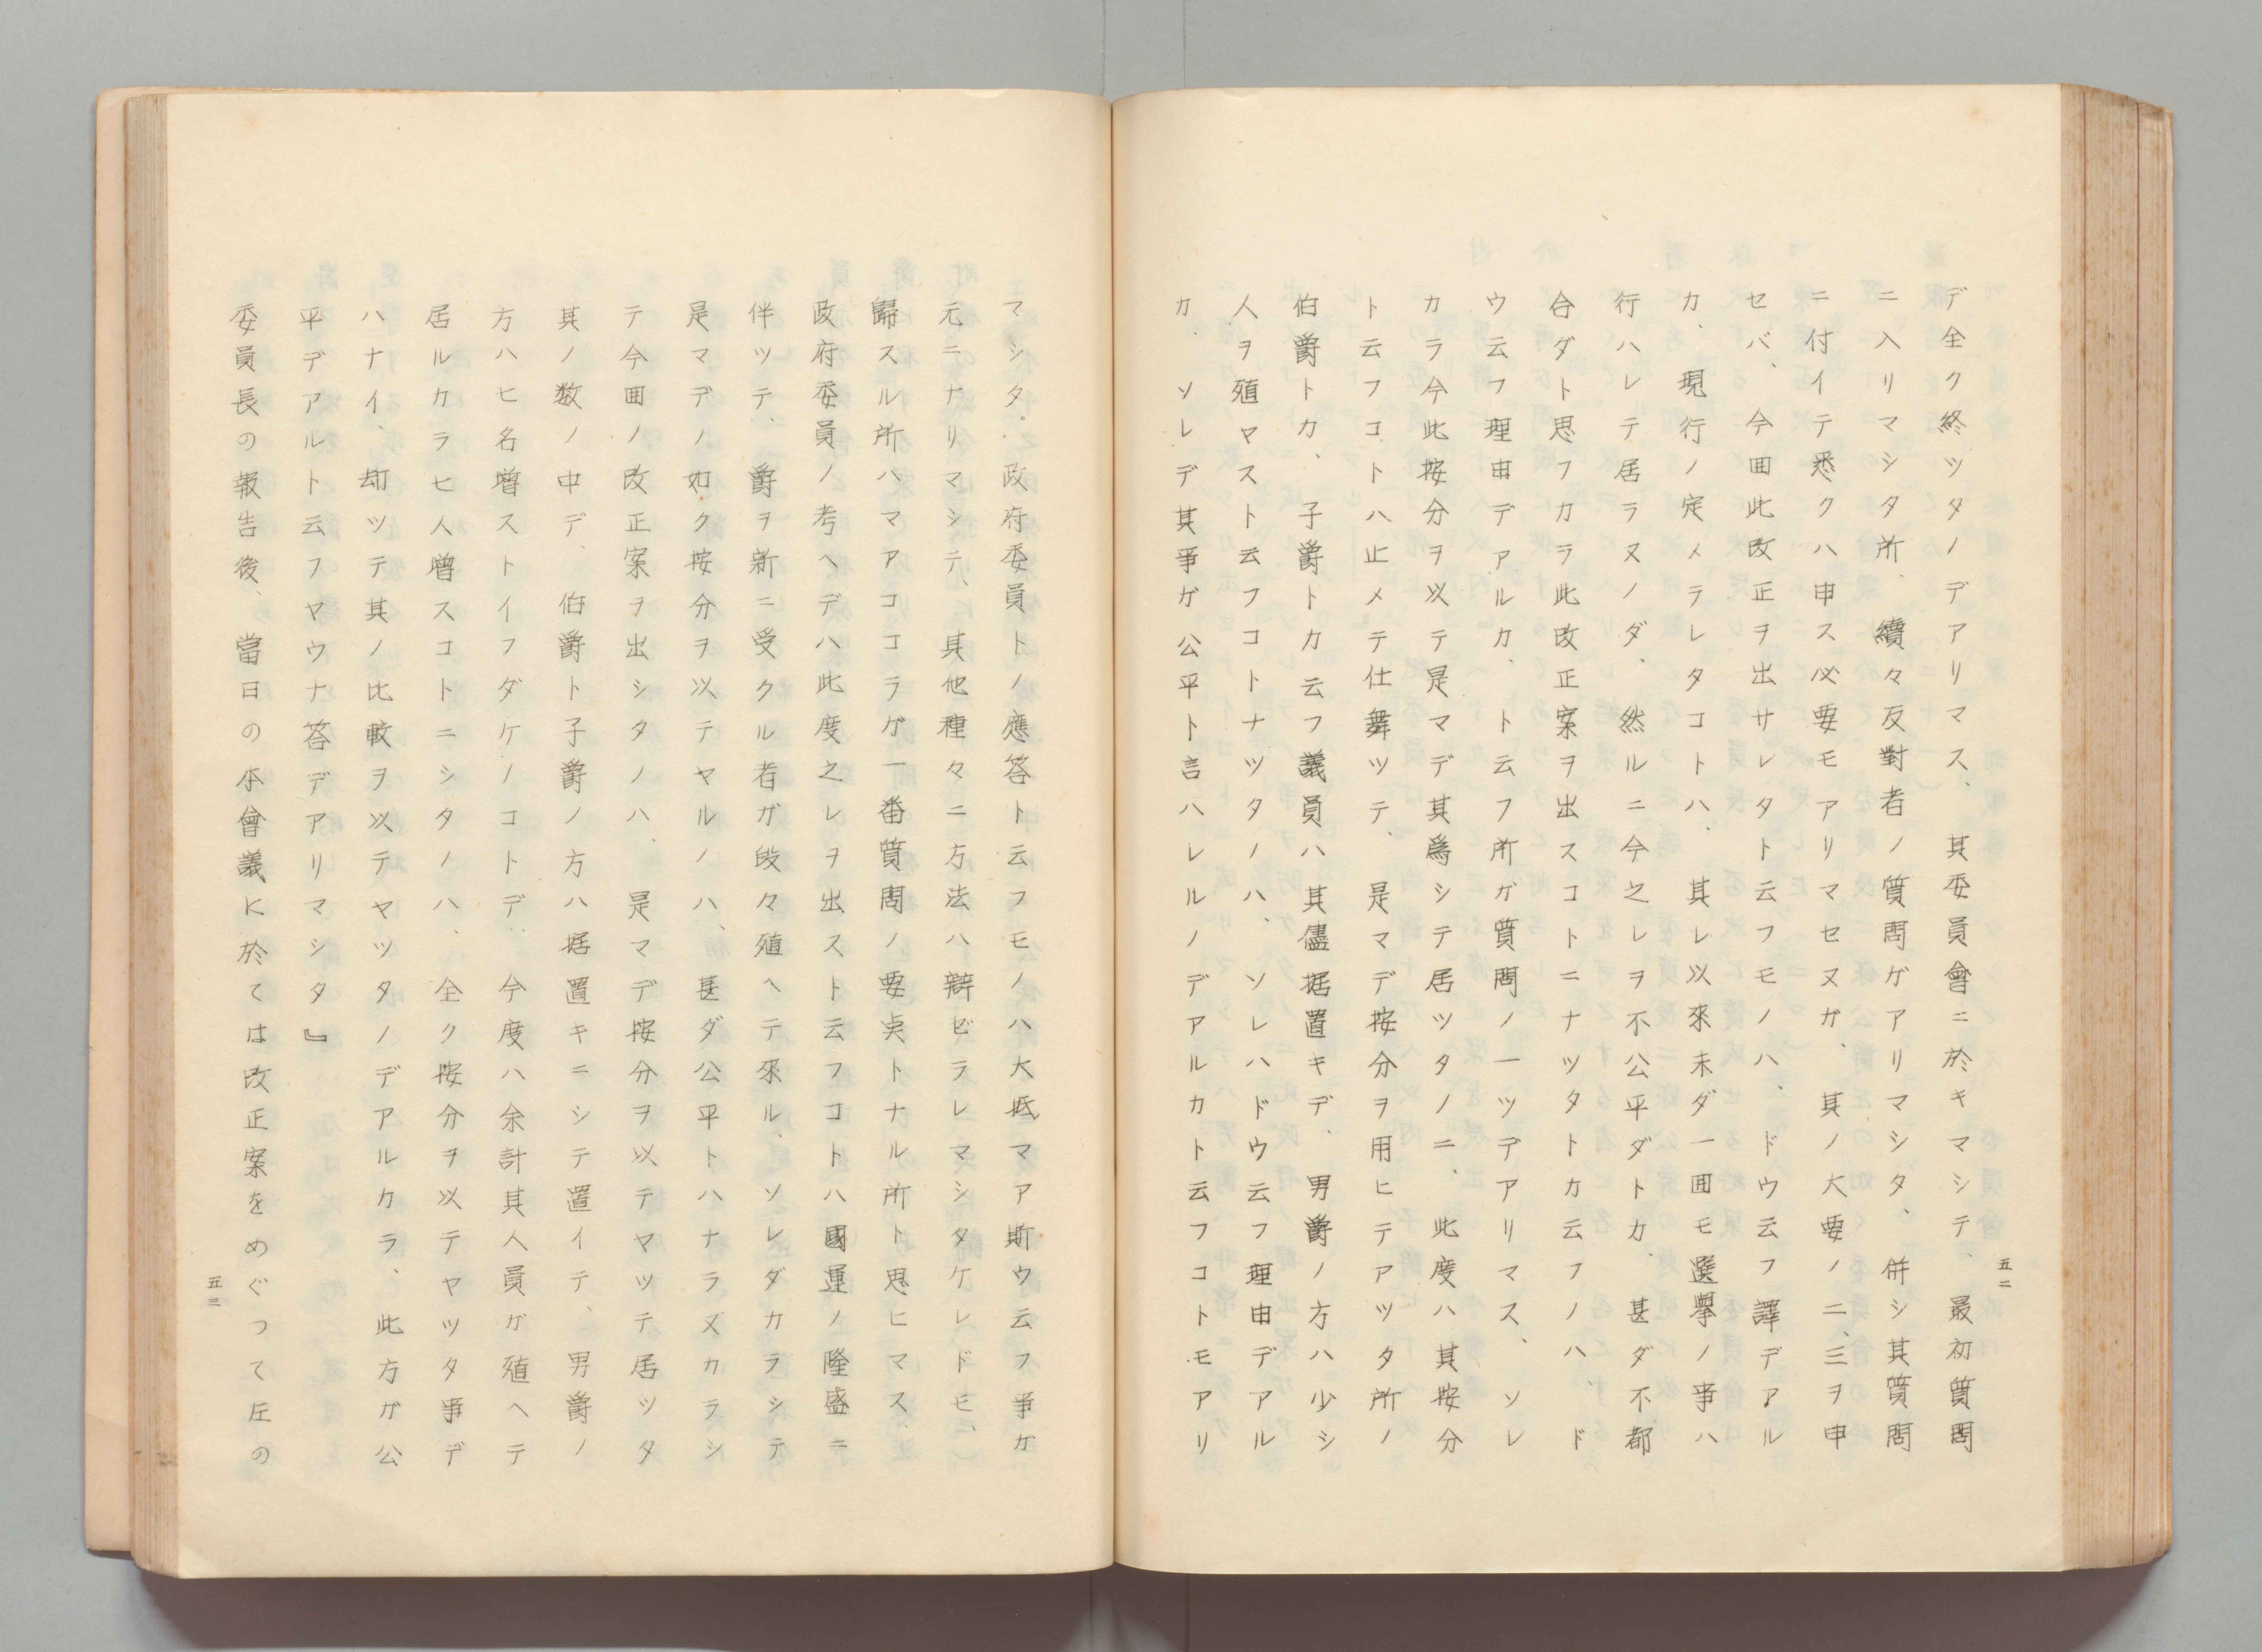 デ全ク終ツタノデアリマス、其委員會ニ於キマシテ、最初質問
ニ入リマシタ所、續々反對者ノ質問ガアリマシタ、併シ其質問
ニ付イテ悉クハ申ス必要モアリマセヌガ、其ノ大要ノ二、三ヲ申
セバ、今囬此改正ヲ出サレタト云フモノハ、ドウ云フ譯デアル
カ、現行ノ定メラレタコトハ、其レ以來未ダ一囬モ選擧ノ事ハ
行ハレテ居ラヌノダ、然ルニ今之レヲ不公平ダトカ、甚ダ不都
合ダト思フカラ此改正案ヲ出スコトニナツタトカ云フノハ、ド
ウ云フ理由デアルカ、ト云フ所ガ質問ノ一ツデアリマス、ソレ
カラ今此按分ヲ以テ是マデ其爲シテ居ツタノニ、此度ハ其按分
ト云フコトハ止メテ仕舞ツテ、是マデ按分ヲ用ヒテアツタ所ノ
伯爵トカ、子爵トカ云フ議員ハ其儘据置キデ、男爵ノ方ハ少シ
人ヲ殖マスト云フコトナツタノハ、ソレハドウ云フ理由デアル
カ、ソレデ其事ガ公平ト言ハレルノデアルカト云フコトモアリ
五二
マシタ、政府委員トノ應答ト云フモノハ大抵マア斯ウ云フ事ガ
元ニナリマシテ、其他種々ニ方法ハ辯ビラレマシタケレドモ、
歸スル所ハマアコラガ一番質問ノ要点トナル所ト思ヒマス、
政府委員ノ考ヘデハ此度之レヲ出スト云フコトハ國運ノ隆盛ニ
伴ツテ、爵ヲ新ニ受クル者ガ段々殖ヘテ來ル、ソレダカラシテ
是マデノ如ク按分ヲ以テヤルノハ、甚ダ公平トハナラヌカラシ
テ今囬ノ改正案ヲ出シタノハ、是マデ按分ヲ以テヤツテ居ツタ
其ノ数ノ中デ、伯爵ト子爵ノ方ハ据置キニシテ置イテ、男爵ノ
方ハヒ名増ストイフダケノコトデ、今度ハ余計其人員ガ殖ヘテ
居ルカラヒ人増スコトニシタノハ、全ク按分ヲ以テヤツタ事デ
ハナイ、却ツテ其ノ比較ヲ以テヤツタノデアルカラ、此方ガ公
平デアルト云フヤウナ答デアリマシタ』
委員長の報告後、當日の本會議に於ては改正案をめぐつて左の
五三